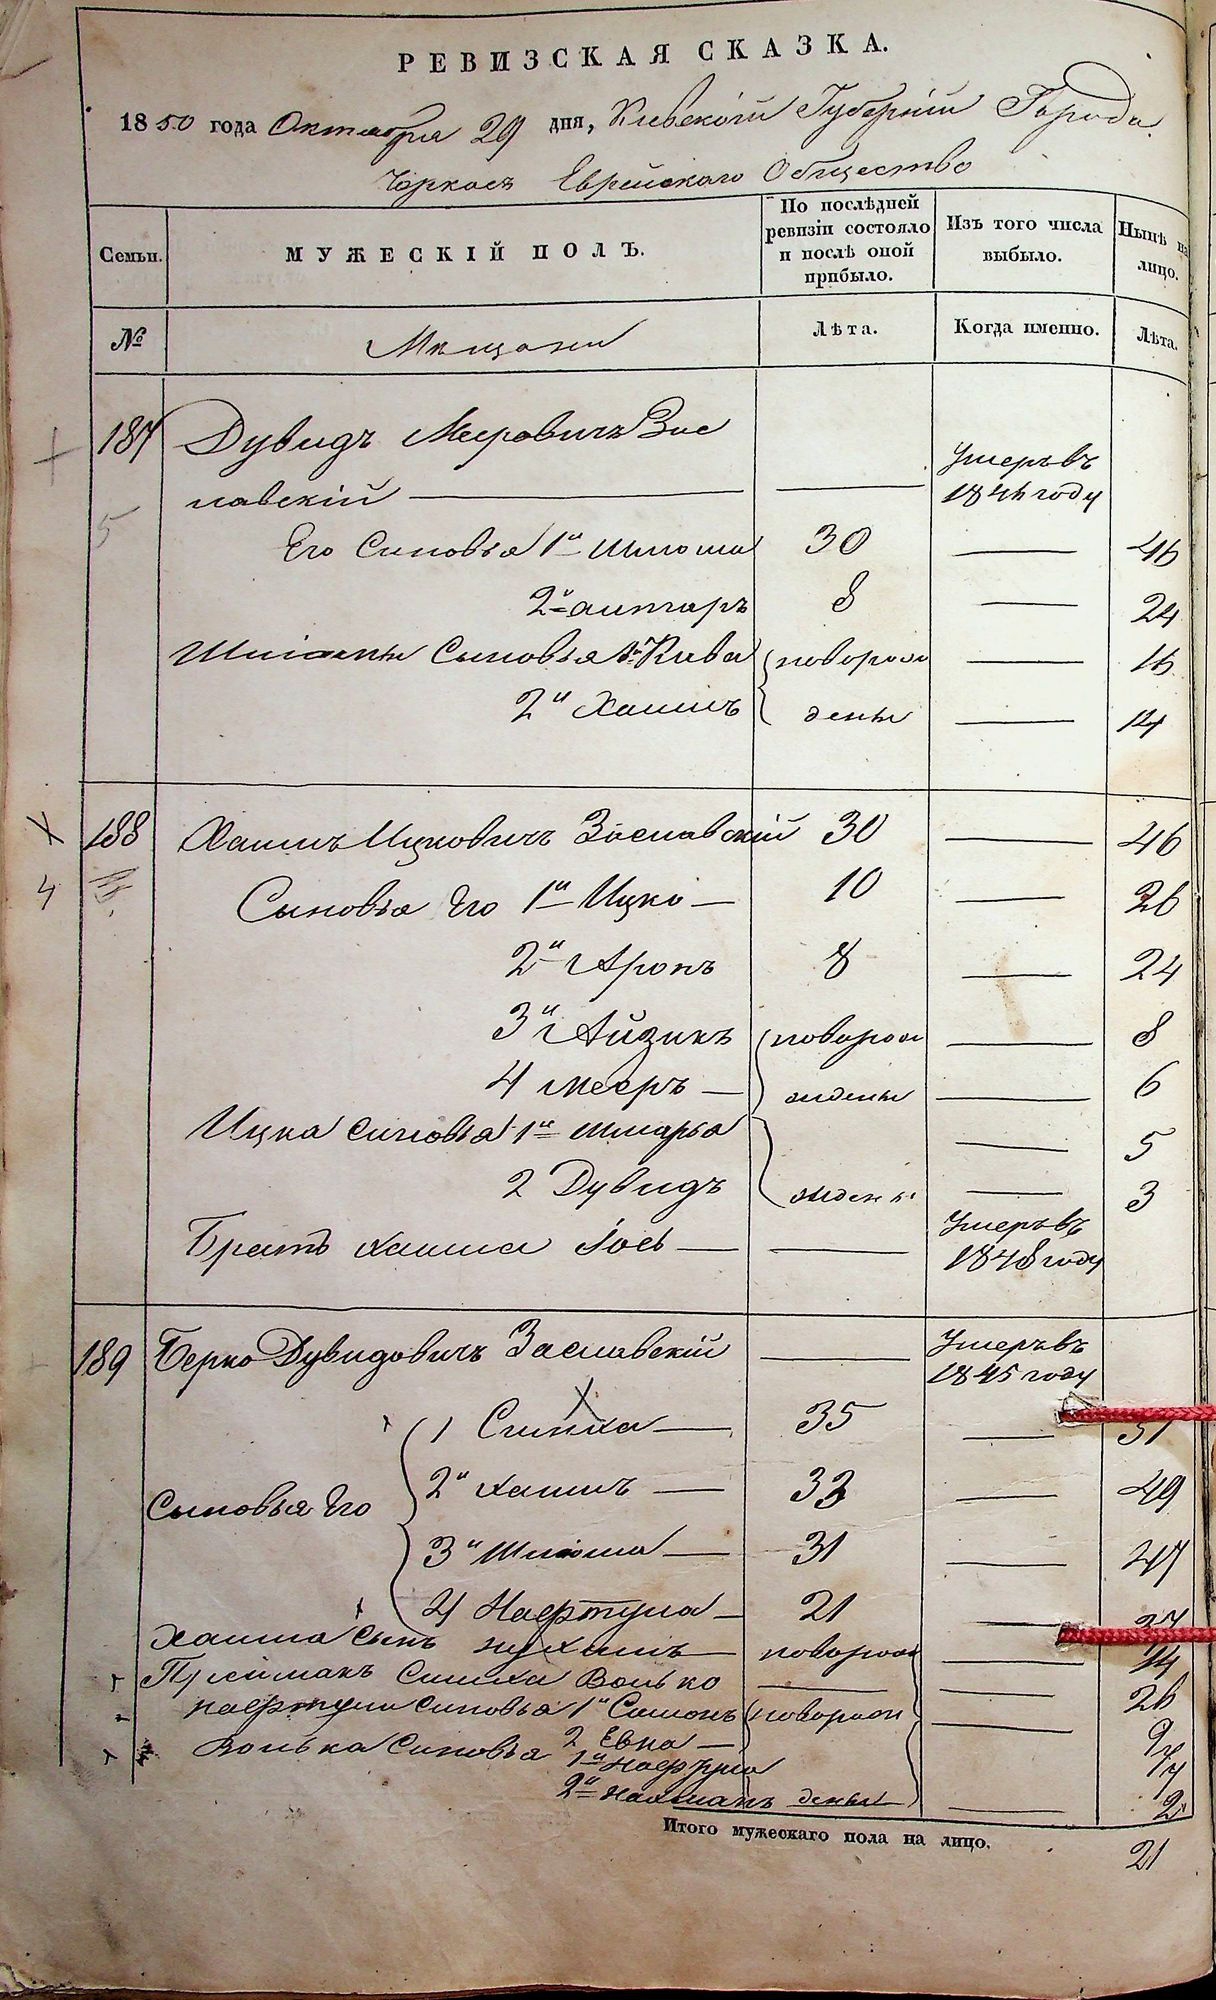 РЕВИЗСКАЯ СКАЗКА.
1850 года Октября 29 дня, Киевской Губернiи Города
Черкасъ Еврейскаго Общество
Семьи. МУЖЕСКІЙ ПОЛЪ. По послѣдней ревизіи состояло и послѣ оной прибыло. Изъ того числа выбыло. Нынѣ на лицо.
№ Мещани Лѣта. Когда именно. Лѣта.
187 Дувидъ Меровичъ Зас
лавскій — — Умеръ въ 1846 году
5 Его Синовья 1й Шлюма 30 — 46
2й аитгаръ 8 — 24
Шлюмы Сыновья 1й Кива новорож — 16
2й Хаимъ дены — 14
188 Хаимъ Ицковичъ Заславскій 30 — 46
4 Сыновья Его 1й Ицко — 10 — 26
2й Аронъ 8 — 24
3й Айзикъ новорож — 8
4 Мееръ — ждены — 6
Ицка синовья 1й Шмарья — 5
2 Дувидъ ждены — 3
Братъ Хаима Іось — — Умеръ въ 1848 году
189 Берко Дувидовичъ Заславскій — Умеръ въ 1845 году
1 Симха — 35 — 51
Сыновья Его 2й Хаимъ — 33 — 49
3й Шлюма — 31 — 47
4 Нафтула — 21 — 37
Хаима сынъ нухимъ — новорож — 14
Плеймакъ Симха Волько — — 26
нафтули синовья 1й Симонъ новорож — 9
2 Евна —
Волька Синовья 1й Нафтула
2й Нахманъ дены — 2
Итого мужескаго пола на лицо.
21